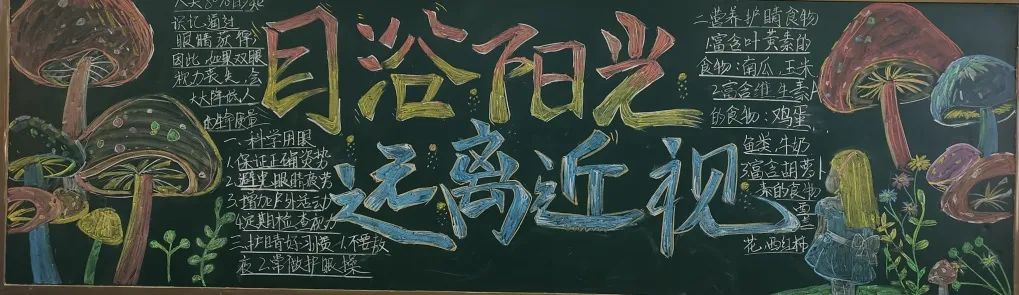 识记,通过
眼睛获得,
因此,如果双眼
视力丧失,会
大大降低人
的生存质量
一、科学用眼
1.保证正确姿势
2.避免眼睛疲劳
3.增加户外活动
定期检查视力
三、护睛好习惯 1.不要熬
夜 2.常做护眼操
目浴阳光
远离近视
二.营养护睛食物
1.富含叶黄素的
食物:南瓜,玉米
2.富含维生素A
的食物:鸡蛋,
鱼类,牛奶
3.富含胡萝卜
素的食物
西兰
花,西红柿